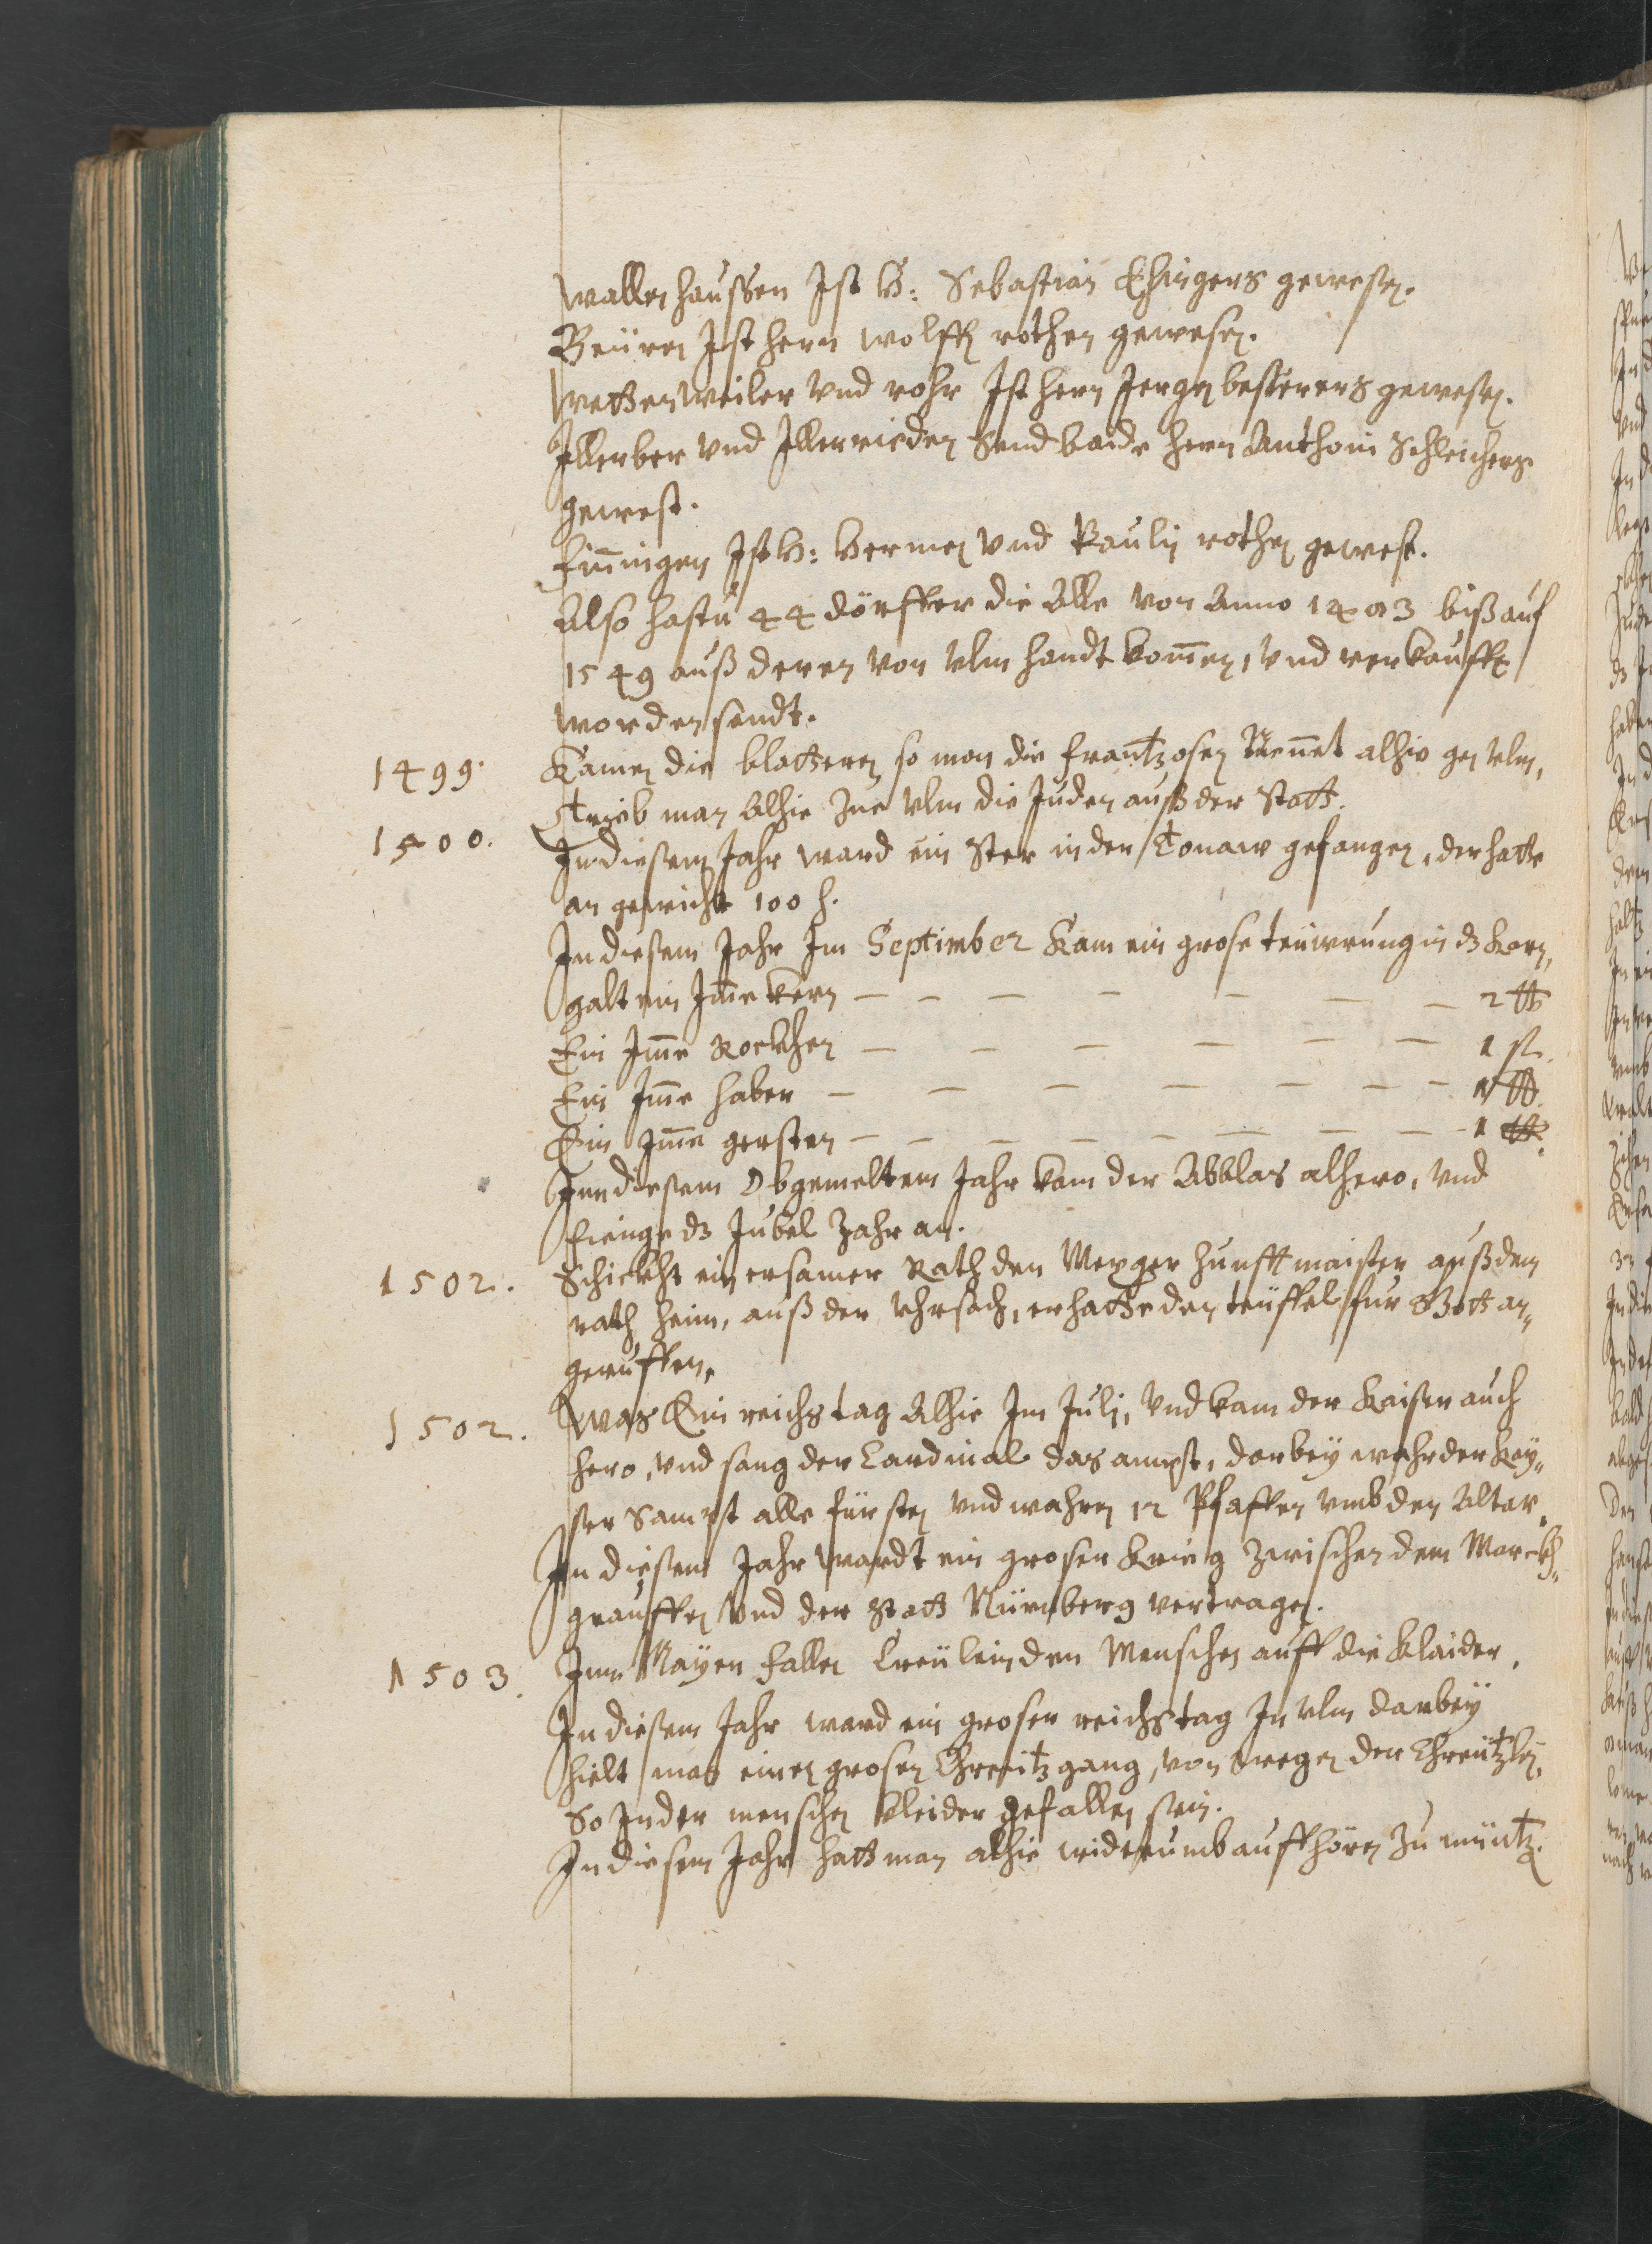 Wallenhaussen Ist H: Sebastian Ehingers gewesen.
Beüren Ist hern Wolff rothen gewesen.
Wettenweiler vnd rohr Ist hern Jergen besserers gewesen.
Illerber vnd Illerrieden Send baide hern Anthoni Schleichers
gewest.
Finningen Ist H: Hermen vnd Paulÿ rothen gewest.
Also hastu 44 dörffer die Alle von Anno biß auf
1549 auß deren von Vlm handt komen, vnd verkaufft
worden sendt.
1499. Kamen die blatteren so man die frantzosen Nennet alhie gen Vlm,
Treib man Alhie Zue Vlm die Juden auß der Statt.
1500. In diesem Jahr ward ein Ster in der Tonaw gefangen, der hatte
an gewicht 100
In diesem Jahr Im September Kam ein grose teüwrung in dz Korn,
galt ein Ime Kern — — — — — — — 2 ℔
Ein Ime Rockhen — — — — — — 1
Ein Ime haber — — — — — — — 1 ℔
Ein Ime gersten — — — — — — — — 1 ℔.
Inn diesem Obgemeltem Jahr kam der Abblas alhero, vnd
fienge dz Jubel Jahr an.
1502. Schickht ein ersamer Rath den Mezger Zunfftmaister auß dem
rath heim, auß der Vhrsach, er hatte den teüffel für Gott an„
geruffen.
1502. Was Ein reichstag Alhie Im Julj, Vnd kam der Kaiser auch
hero, vnd sang der Cardinal das ampt, darbey wahr der Key„
ser Sampt alle fürsten vnd wahren 12 Pfaffen vmb den Altar.
In diesem Jahr wardt ein groser Krieg zwischen dem Marckh„
grauffen Vnd der Statt Nürnberg vertragen.
1503. Imn Mayen fallen Creülein den Menschen auff die Klaider.
In diesem Jahr ward ein groser reichstag In Vlm darbeÿ
hielt man einen grosen Chreütz gang, von wegen der Chreützlen,
So In der menschen kleider gefallen sein.
In diesem Jahr hatt man alhie widerumb auffhören Zu müntz.